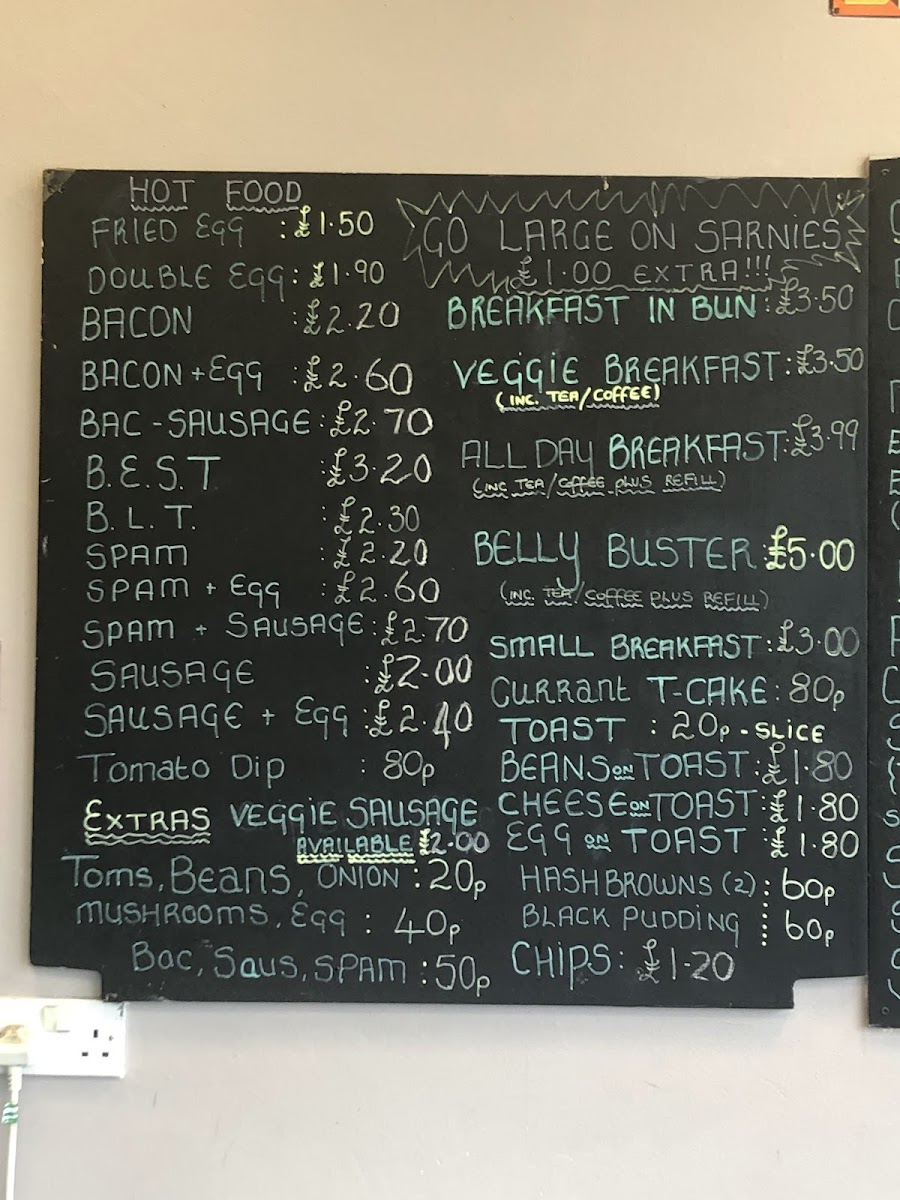 HOT FOOD
FRIED Egg : £1.50
DOUBLE Egg: £1.90
BACON : £2.20
BACON + Egg : £2.60
BAC - SAUSAGE: £2.70
B.E.S.T : £3.20
B.L.T. : £2.30
SPAM : £2.20
SPAM + Egg : £2.60
SPAM + SAUSAGE: £2.70
SAUSAGE : £2.00
SAUSAGE + Egg : £2.40
Tomato Dip : 80p
EXTRAS VEGGIE SAUSAGE
AVAILABLE £2.00
Toms, Beans, ONION : 20p
MUSHROOMS, Egg : 40p
Bac, Saus, SPAM : 50p
GO LARGE ON SARNIES
£1.00 EXTRA!!!
BREAKFAST IN BUN : £3.50
VEGGIE BREAKFAST : £3.50
(INC. TEA/COFFEE)
ALL DAY BREAKFAST: £3.99
(INC TEA/COFFEE PLUS REFILL)
BELLY BUSTER : £5.00
(INC. TEA/COFFEE PLUS REFILL)
SMALL BREAKFAST : £3.00
CURRANT T-CAKE : 80p
TOAST : 20p - SLICE
BEANS on TOAST : £1.80
CHEESE on TOAST : £1.80
EGG on TOAST : £1.80
HASH BROWNS (2) : 60p
BLACK PUDDING : 60p
CHIPS : £1.20